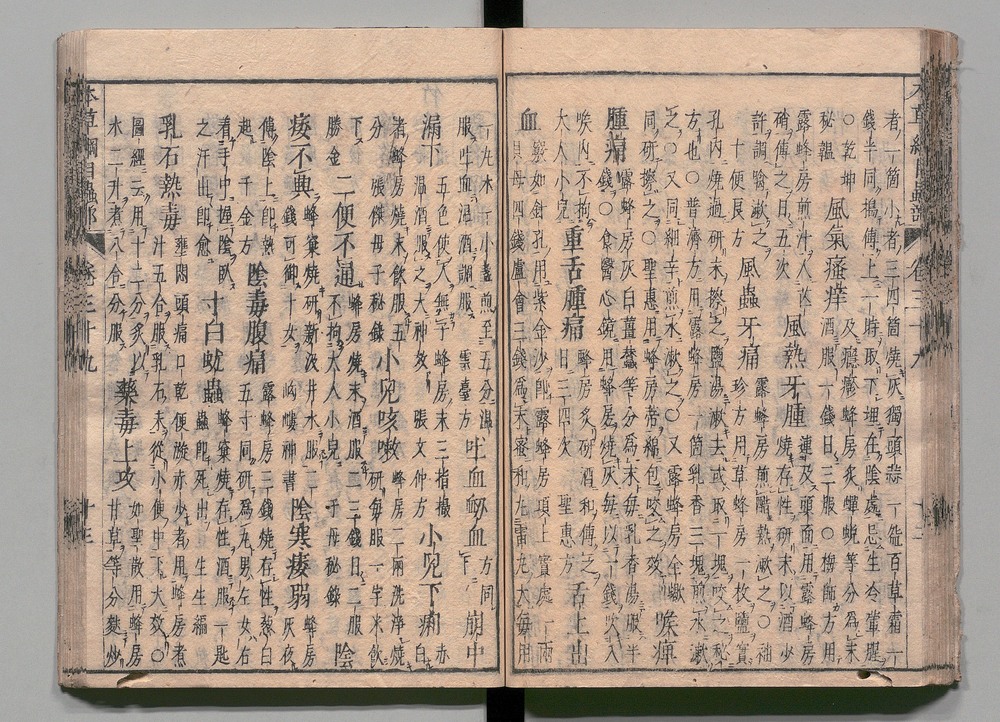 者一箇小者三四箇燒灰獨頭蒜一箇百草霜一
錢半同搗傅上一時取下埋在陰處忌生冷葷腥
○乾坤祕韞 風氣瘙痒 及癮疹蜂房炙蟬蛻等分爲末酒服一錢日三服○梅師方用
露蜂房煎汁入芒硝傅之日五次 風熱牙腫 連及頭面用露蜂房燒存性研末以酒少
許調噙漱之十便良方 風蟲牙痛 露蜂房煎醋熱漱之○袖珍方用草蜂房一枚鹽實
孔內燒過研末擦之鹽湯漱去或取一塊咬之祕
方也○普濟方用露蜂房一箇乳香三塊煎水漱
之○又同細辛煎水漱之○又露蜂房全蠍
同研擦之○聖惠用蜂房蒂綿包咬之效 喉痺
腫痛 露蜂房灰白薑蠶等分爲末每乳香湯服半錢○食醫心鏡用蜂房燒灰每以一錢吹入
喉內不拘大人小兒 重舌腫痛 蜂房炙研酒和傅之日三四次 聖惠方 舌上出
血 竅如針孔用紫金沙即露蜂房頂上實處一兩貝母四錢蘆會三錢爲末蜜和丸雷丸大每用
一丸水一小盞煎至五分溫服吐血溫酒調服 雲臺方 吐血衄血 方同上 崩中
漏下 五色使人無子蜂房末三指撮溫酒服之大神效 張文仲方 小兒下痢 赤白
者蜂房燒末飲服五分 張傑母子祕錄 小兒咳嗽 蜂房二兩洗淨燒研每服一字米飲
下 勝金 二便不通 蜂房燒末酒服二三錢日二服不拘大人小兒 子母祕錄 陰
痿不興 蜂窠燒研新汲井水服二錢可御十女 岣嶁神書 陰寒痿弱 蜂房灰夜
傅陰上即熱起 千金方 陰毒腹痛 露蜂房三錢燒存性葱白五寸同研爲丸男左女右
着手中握陰臥之汗出即愈 寸白蚘蟲 蜂窠燒存性酒服一匙蟲即死出 生生編
乳石熱毒 壅悶頭痛口乾便旋赤少者用蜂房煮汁五合服乳石末從小便中下大效○
圖經云用十二分炙以水二升煮八合分服 藥毒上攻 如聖散用蜂房甘草等分麩炒
本草綱目蟲部 卷三十九 十三